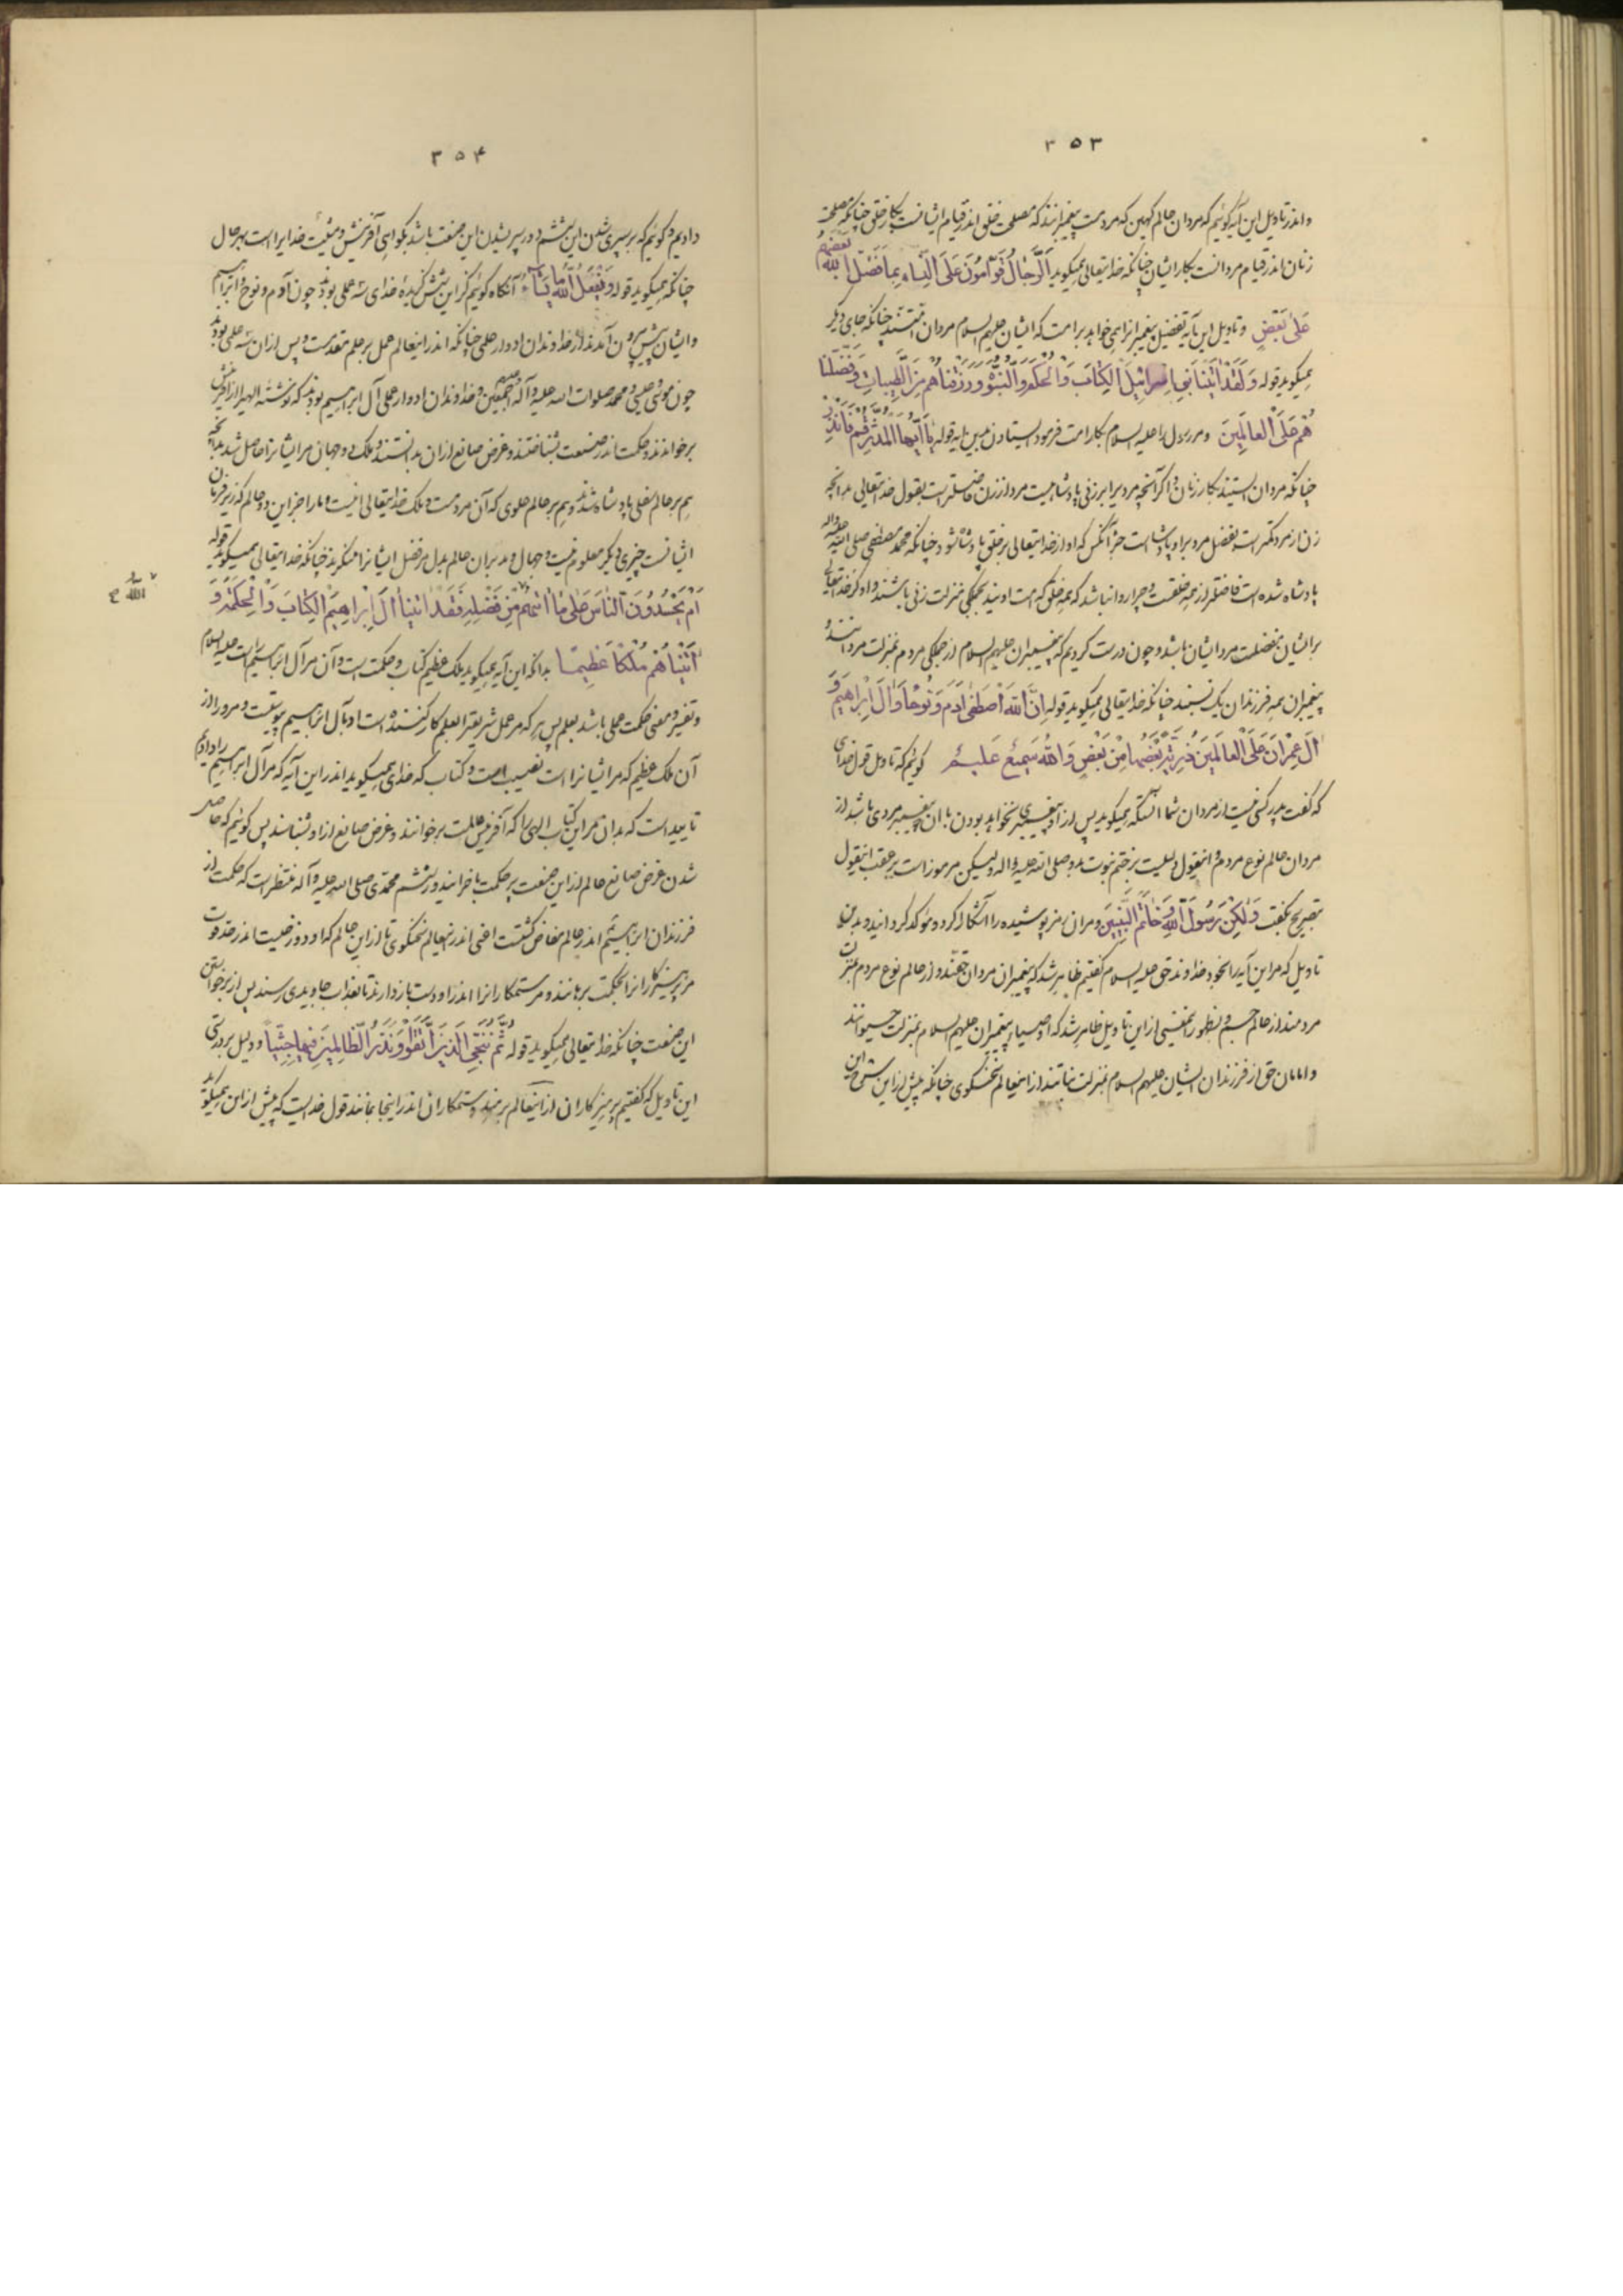 ۳۵۳
و اندر تاویل این آیه گوئیم که مردان عالم کهین که مردمست پیغمبرانند که مصلحت خلق اندر قیام ایشانست بکار خلق چنانکه مصلحت
زنان اندر قیام مردانست بکار ایشان چنانکه خدایتعالی همیگوید اَلرِّجالُ قَوّامُونَ عَلَی النِّساءِ بِما فَضَّلَ اللهُ بَعْضَهُمْ
عَلی بَعْضٍ و تاویل این آیه تفضیل پیغمبرانرا همی خواهد بر امت که ایشان علیهم السلام مردان امتند چنانکه جای دیگر
همیگوید قوله وَلَقَدْ اتَیْنا بَنِی اِسْرائیلَ الْکِتابَ وَالْحُکْمَ وَالنُّبُوَّةَ وَرَزَقْناهُمْ مِنَ الطَّیِّباتِ وَفَضَّلْنا
هُمْ عَلَی الْعالَمِینَ و مر رسول را علیه السلام بکار امت فرمود ایستادن بدین آیه قوله یا اَیُّهَا الْمُدَّثِّرُ قُمْ فَاَنْذِرْ
چنانکه مردان ایستند بکار زنان و اگر آنچه مرد برابر زنی پادشاهیست مرد از زن فاضلتر است بقول خدایتعالی بدانچه
زن از مرد کمتر است بفضل مرد بر او پادشا است جز آنکس که او از خدایتعالی بر خلق پادشا شود چنانکه محمد مصطفی صلی الله علیه و اله
پادشاه شده است فاضلتر از همه خلقست و چرا روا نباشد که همه خلق که امت اویند بجملگی بمنزلت زنی باشند و او کز خدایتعالی
بر ایشان بفضلست مرد ایشان باشد و چون درست کردیم که پیغمبران علیهم السلام از جملگی مردم بمنزلت مردانند و
پیغمبران همه فرزندان یک نسبند چنانکه خدایتعالی همیگوید قوله اِنَّ اللهَ اصْطَفی ادَمَ وَنُوحًا وَالَ اِبْراهِیمَ وَ
الَ عِمْرانَ عَلَی الْعالَمِینَ ذُرِّیَّةً بَعْضُها مِنْ بَعْضٍ وَاللهُ سَمِیعٌ عَلِیمٌ گوئیم که تاویل قول خدای
که گفت پدر کسی نیست از مردان شما آنستکه همیگوید پس از او پیغمبری نخواهد بودن تا آن پیغمبر مردی باشد از
مردان عالم نوع مردم و اینقول دلیلست بر ختم نبوت بدو صلی الله علیه و اله ولیکن مرموز است بر عقب اینقول
بتصریح بگفت وَلکِنْ رَسُولَ اللهِ وَخاتَمَ النَّبِیِّینَ و مر آن رمز پوشیده را آشکارا کرد و موکد گردانید و بدین
تاویل که مر این آیه را بخود خداوند حق علیه السلام گفتیم ظاهر شد که پیغمبران مردان حقند و از عالم نوع مردم بمنزلت
مردمند از عالم جسم و بظهور این تاویل ظاهر شد که اوصیاء پیغمبران علیهم السلام بمنزلت حیوانند
و امامان حق از فرزندان ایشان علیهم السلام بمنزلت نباتند از اینعالم سخنگوی چنانکه پیش از این شرح این
۳۵۴
دادیم و گوئیم که بر سپری شدن این ششم دور سپری شدن این صنعت باشد بگواهی آفرینش و مشیت خدایراست بهر حال
چنانکه همیگوید قوله وَیَفْعَلُ اللهُ ما یَشاءُ آنگاه گوئیم کز این شش گزیدهٔ خدای سه عملی بودند چون آدم و نوح و ابراهیم
و ایشان پیش بیرون آمدند از خداوندان ادوار علمی چنانکه اندر اینعالم عمل بر علم مقدمست و پس از آن سه علمی بودند
چون موسی و عیسی و محمد صلوات الله علیه و آله و علیهم اجمعین و خداوندان ادوار علمی آل ابراهیم بودند که نوشته الهیرا از آفرینش
برخواندند و حکمت اندر صنعت بشناختند و غرض صانع از آن بدانستند و ملک دو جهان مر ایشانرا حاصل شد بدانچه
هم بر عالم سفلی پادشاه شدند و هم بر عالم علوی که آن مردمست و ملک خدایتعالی اینست و ما را جز این دو عالم که زیر فرمان
ایشانست چیزی دیگر معلوم نیست و جهال و مدبران عالم بدل مر فضل ایشانرا منکرند چنانکه خدایتعالی همیگوید قوله
اَمْ یَحْسُدُونَ النّاسَ عَلی ما اتیهُمْ مِنْ فَضْلِهِ فَقَدْ اتَیْنا الَ اِبْراهِیمَ الْکِتابَ وَالْحِکْمَةَ وَ
اللهُ
اتَیْناهُمْ مُلْکًا عَظِیمًا بدانکه این آیه همیگوید ملک عظیم کتاب و حکمتست و آن مر آل ابراهیم راست علیه السلام
و تفسیر و معنی حکمت عملی باشد بعلم پس هر که مر عمل شریعترا بعلم کار کننده است او بآل ابراهیم پیوستست و مر او را از
آن ملک عظیم که مر ایشانرا است نصیب است و کتاب که خدای همیگوید اندر این آیه که مر آل ابراهیم را دادیم
تایید است که بدان مر این کتاب الهی را که آفرینش عالمست برخوانند و غرض صانع از او بشناسند پس گوئیم که حاصل
شدن غرض صانع عالم از این صنعت پر حکمت باخر آیند دور ششم محمدی صلی الله علیه و آله منتظر است که حکمت از
فرزندان ابراهیم اندر عالم مفاض گشتست اعنی اندر اینعالم سخنگوی تا از این عالم که او دوزخیست اندر حد قوت
مر پرهیزکارانرا بحکمت برهانند و مر ستمکارانرا اندر او دست بازدارند تا بعذاب جاویدی رسند پس از برخواستن
این صنعت چنانکه خدایتعالی همیگوید قوله ثُمَّ نُنَجِّی الَّذِینَ اتَّقَوْا وَنَذَرُ الظّالِمِینَ فِیها جِثِیًّا و دلیل بر درستی
این تاویل که گفتیم پرهیزکاران از اینعالم برهند و ستمکاران اندر اینجا بمانند قول خدایست که پیش از این همیگوید